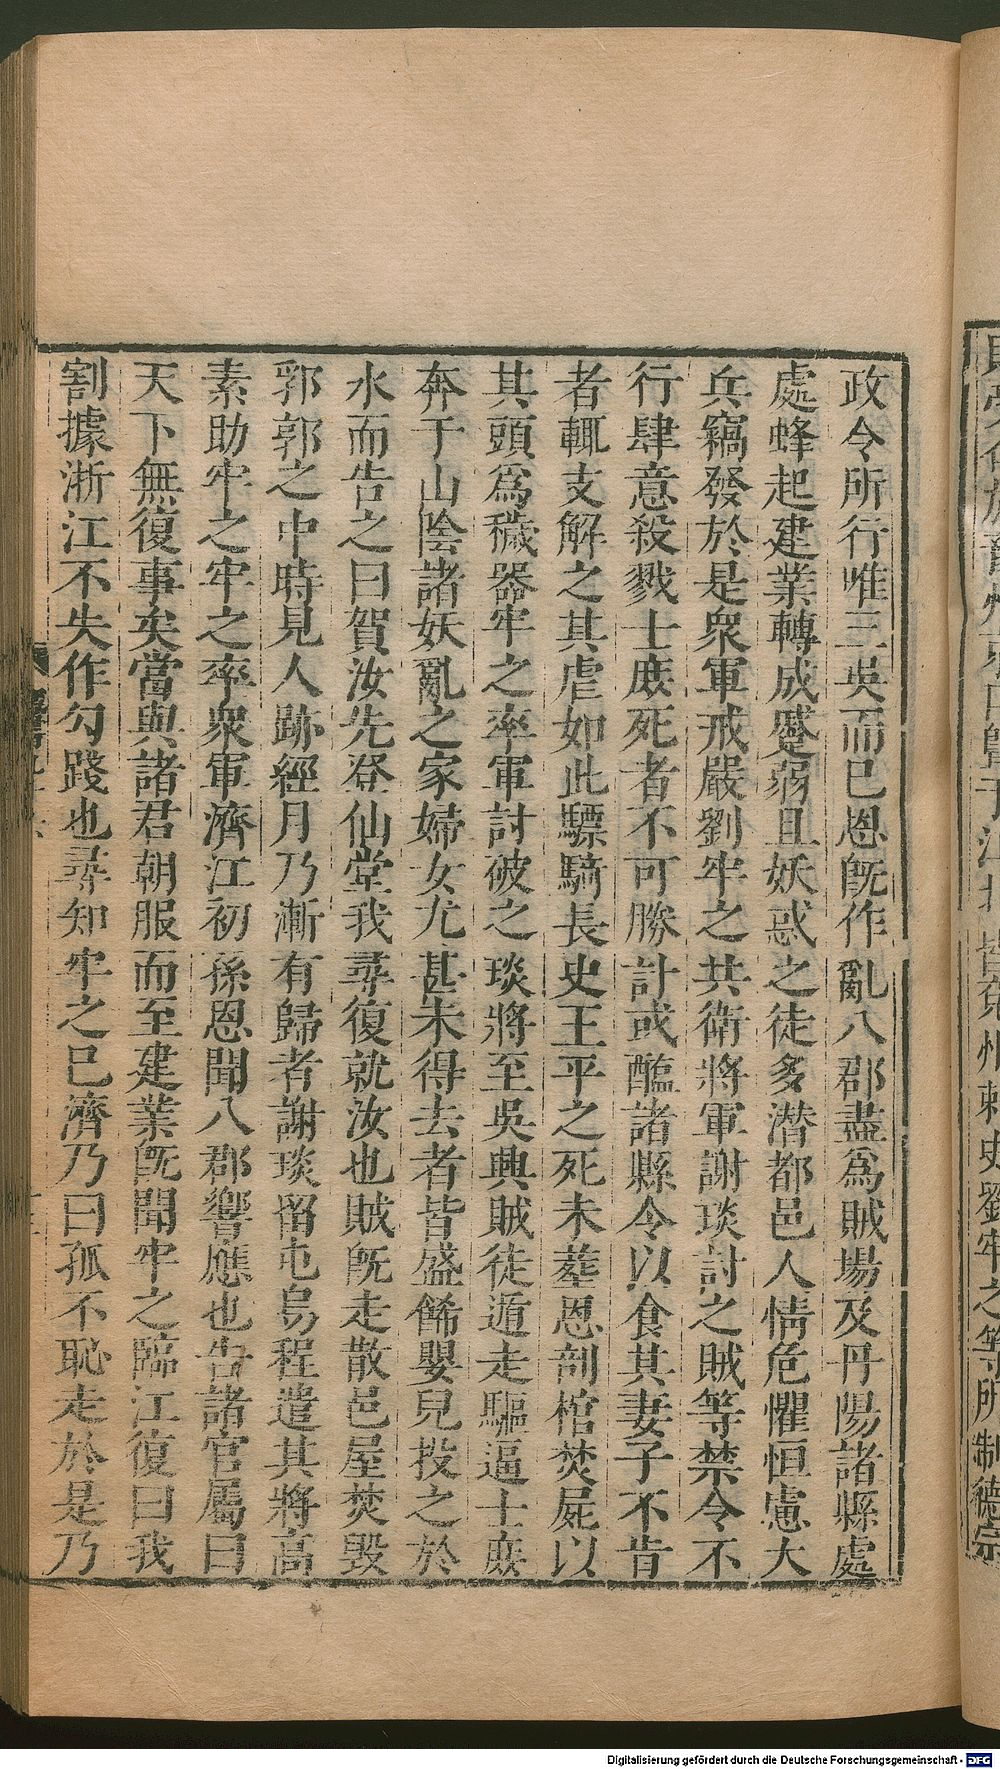 政令所行唯三吳而已恩旣作亂八郡盡爲賊場及丹陽諸縣處
處蜂起建業轉成蹙弱且妖惑之徒多潛都邑人情危懼恒慮大
兵竊發於是衆軍戒嚴劉牢之共衛將軍謝琰討之賊等禁令不
行肆意殺戮士庶死者不可勝計或醢諸縣令以食其妻子不肯
者輒支解之其虐如此驃騎長史王平之死未葬恩剖棺焚屍以
其頭爲穢器牢之率軍討破之琰將至吳興賊徒遁走驅逼士庶
奔于山陰諸妖亂之家婦女尤甚未得去者皆盛飾嬰兒投之於
水而告之曰賀汝先登仙堂我尋復就汝也賊旣走散邑屋焚毀
郛郭之中時見人跡經月乃漸有歸者謝琰留屯烏程遣其將高
素助牢之牢之率衆軍濟江初孫恩聞八郡響應也告諸官屬曰
天下無復事矣當與諸君朝服而至建業旣聞牢之臨江復曰我
割據浙江不失作勾踐也尋知牢之已濟乃曰孤不恥走於是乃
皆兗州刺史劉牢之等所制德宗
Digitalisierung gefördert durch die Deutsche Forschungsgemeinschaft - DFG